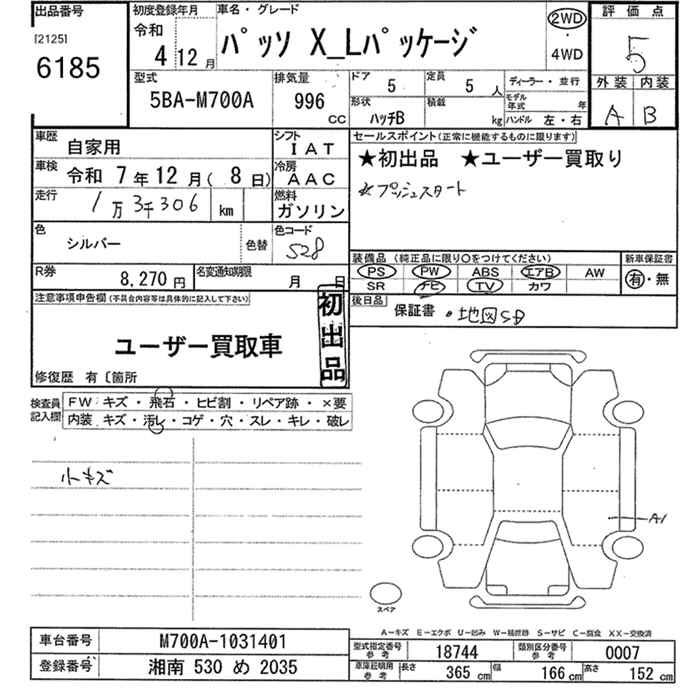 出品番号
[2125]
6185
初度登録年月
令和
4年12月
車名・グレード
パッソ X_Lパッケージ
2WD
・
4WD
評価点
5
外装 内装
A B
型式
5BA-M700A
排気量
996
CC
ドア
5
定員
5人
ディーラー・並行
形状
ハッチB
積載
kg
モデル年式 年
ハンドル 左・右
車歴
自家用
シフト
IAT
車検
令和 7年12月(8日)
冷房
AAC
走行
1万3千306 km
燃料
ガソリン
色
シルバー
色替
色コード
S28
R券
8,270円
名変通知期限
月 日
セールスポイント(正常に機能するものに限ります)
★初出品 ★ユーザー買取り
★プッシュスタート
装備品 (純正品に限り○をつけてください)
PS PW ABS エアB AW
SR ナビ TV カワ
新車保証書
有・無
後日品
保証書・地図SD
注意事項申告欄(不具合内容等は具体的に記入して下さい)
初出品
ユーザー買取車
修復歴 有〔箇所
検査員記入欄
FW キズ・飛石・ヒビ割・リペア跡・×要
内装 キズ・汚レ・コゲ・穴・スレ・キレ・破レ
小キズ
A1
スペア
A-キズ E-エクボ U-凹み W-補修跡 S-サビ C-腐食 XX-交換済
車台番号
M700A-1031401
登録番号
湘南 530 め 2035
型式指定番号 参考
18744
類別区分番号 参考
0007
車庫証明用 参考
長さ 365 cm
幅 166 cm
高さ 152 cm